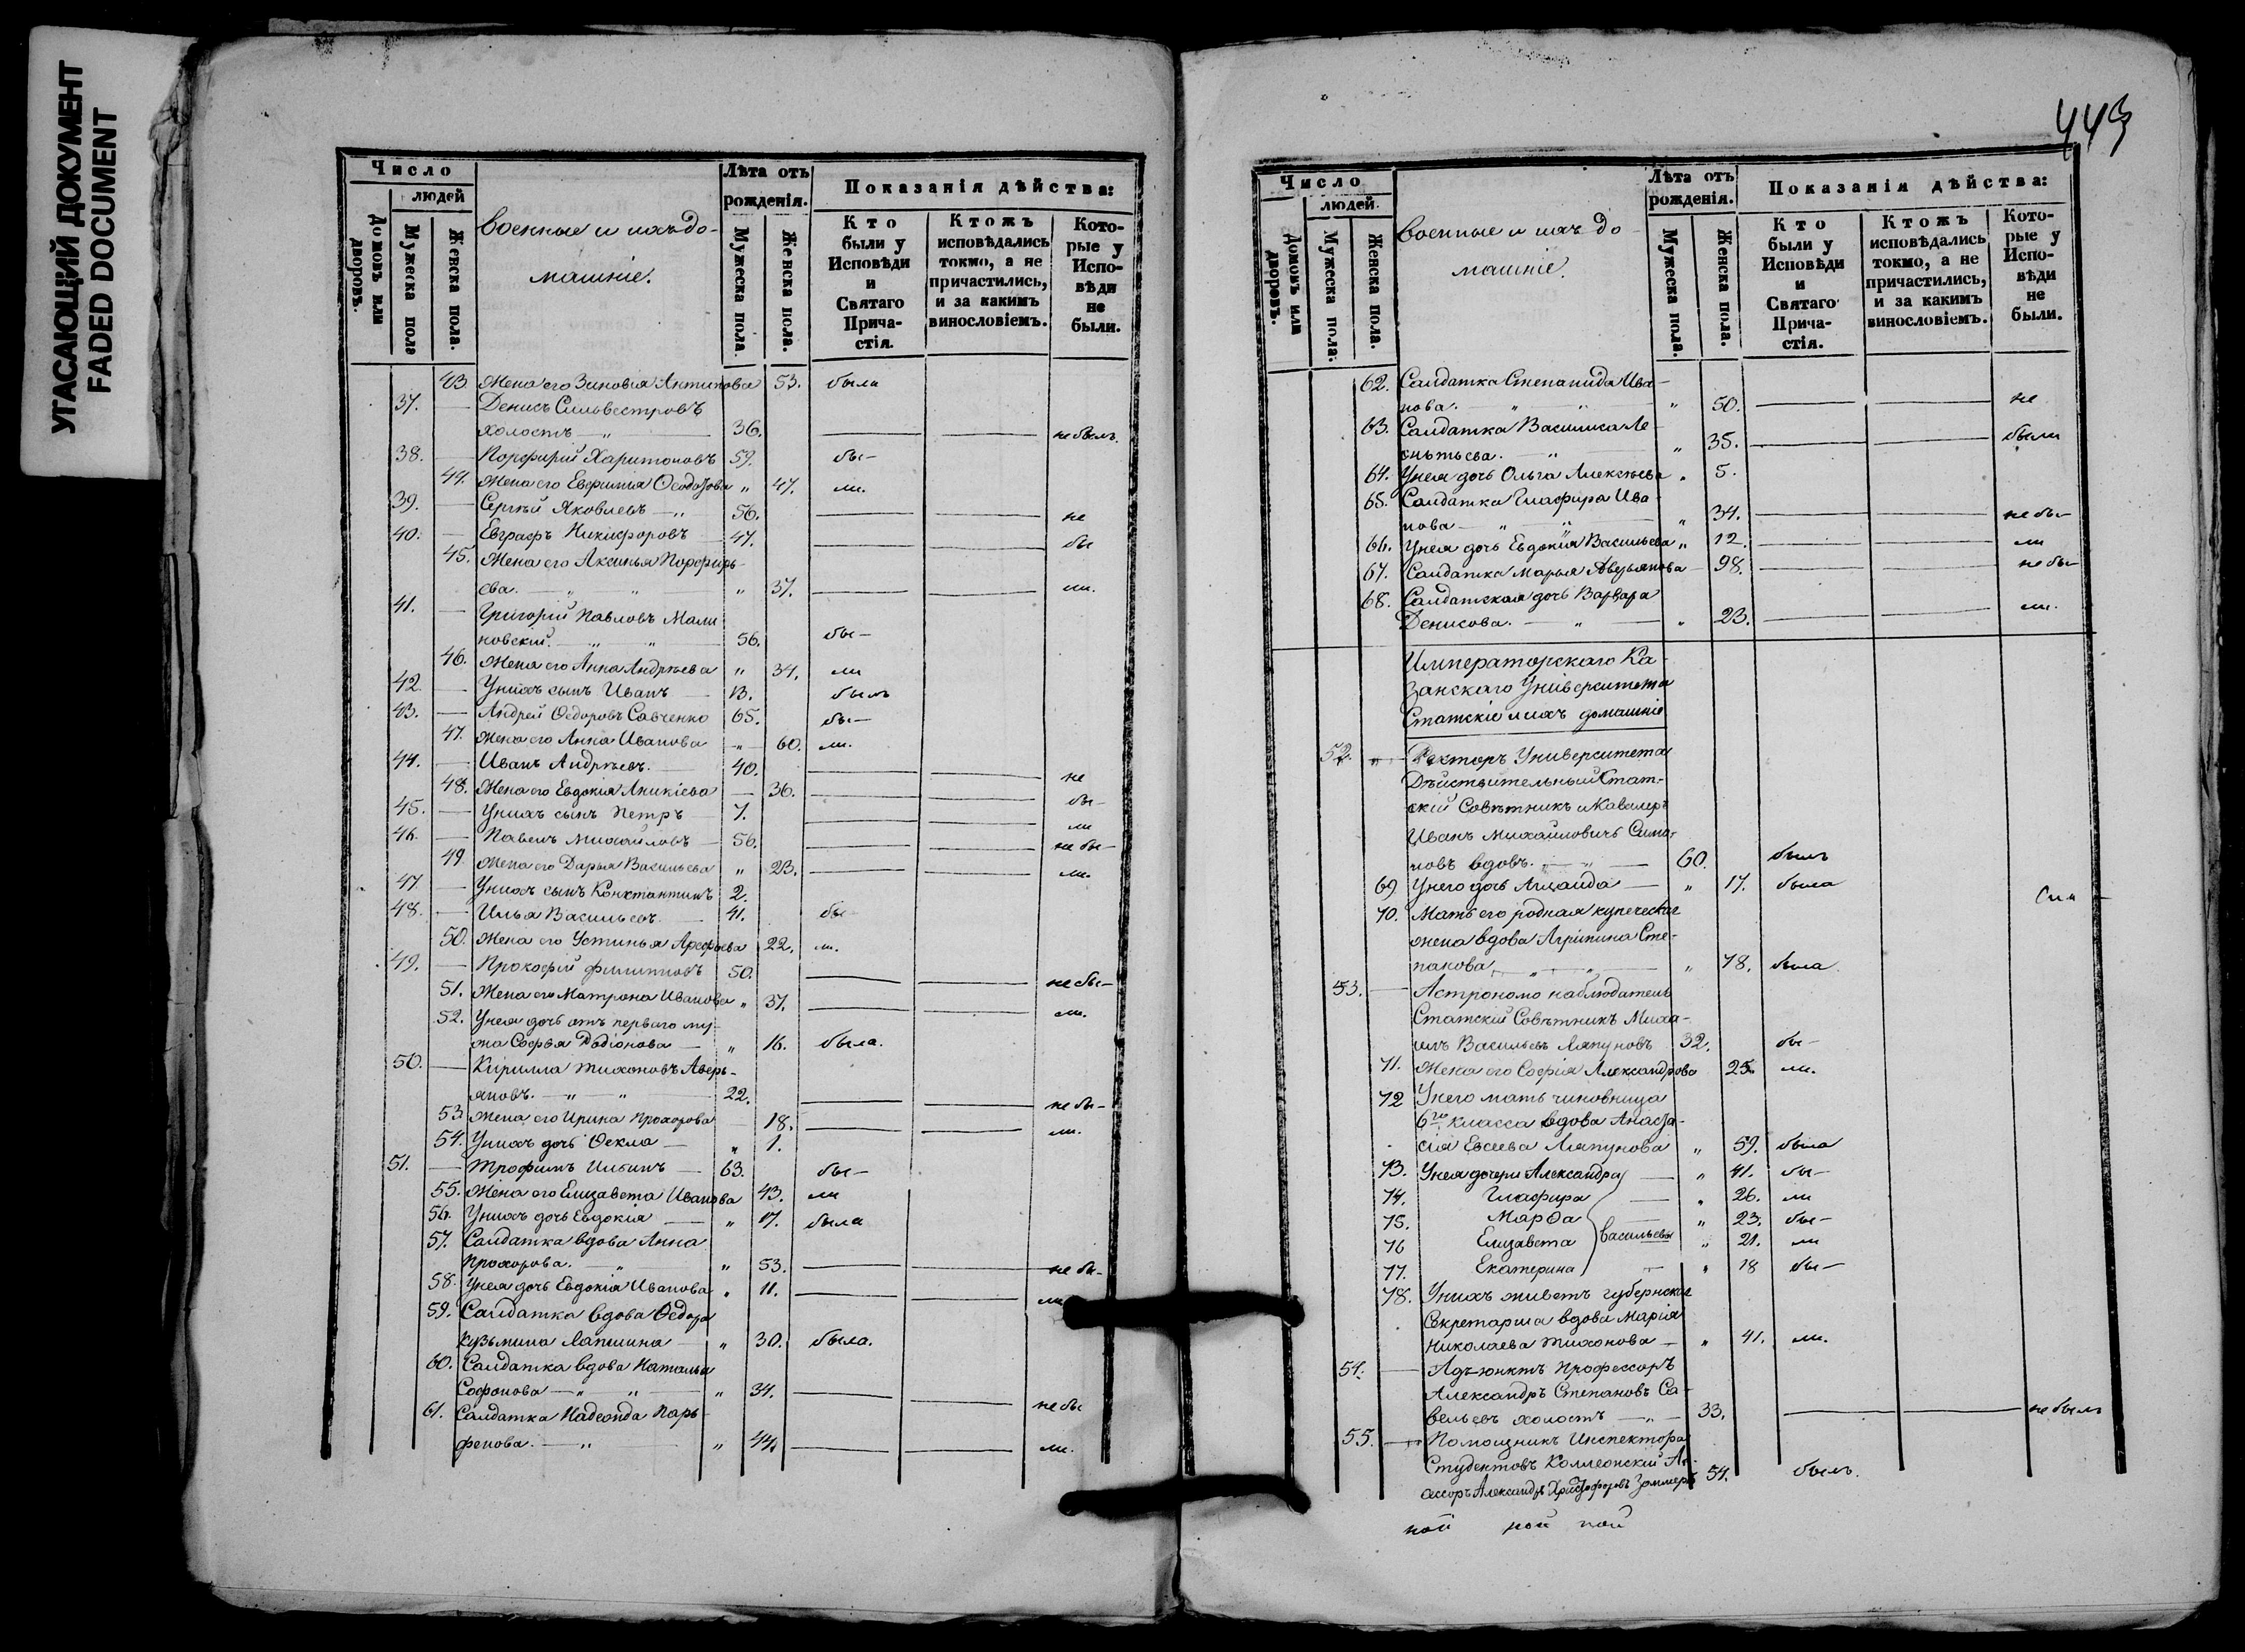 УГАСАЮЩИЙ ДОКУМЕНТ
FADED DOCUMENT
Число
людей
Домовъ или дворовъ.
Мужеска пола
Женска пола.
военные и ихъ до-
машніе.
Лѣта отъ
рожденія.
Мужеска пола.
Женска пола.
Показанія дѣйства:
Кто были у Исповѣди и Святаго Прича-стія.
Ктожъ исповѣдались токмо, а не причастились, и за какимъ винословіемъ.
Кото-рые у Испо-вѣди не были.
43 Жена его Зиновія Антипова 53. была
37. — Денисъ Сильвестровъ
холостъ — „ — 36. не былъ.
38. — Порфирій Харитоновъ 59. бы-
44. Жена его Евфимія Ѳеодотова „ 47. ли.
39. — Сергѣй Яковлевъ — „ 56. не
40. — Евграфъ Никифоровъ — 47. бы
45. Жена его Аксинья Порфирь-
ева. „ „ „ 37. ли.
41. — Григорій Павловъ Мали
новскій. — „ „ 56. бы-
46. Жена его Анна Андреева „ 34. ли
42 — У нихъ сынъ Иванъ — 13. былъ
43. — Андрей Ѳедоровъ Савченко 65. бы-
47. Жена его Анна Иванова „ 60. ли.
44. — Иванъ Андреевъ. — 40. не
48. Жена его Евдокія Аникіева — 36. бы-
45. — У нихъ сынъ Петръ — 7. ли
46. — Павелъ Михайловъ — 56. не бы-
49. Жена его Дарья Васильева „ 23. ли.
47. — У нихъ сынъ Константинъ 2.
48. — Илья Васильевъ. — 41. бы-
50. Жена его Устинья Арефьева 22. ли.
49. — Прокофій Филиповъ 50. не бы-
51. Жена его Матрона Иванова „ 37. ли.
52. У нея дочь отъ перваго му-
жа Софья Родіонова — „ 16. была.
50. — Кирилла Тихоновъ Аверь-
яновъ. — „ — „ — 22. не бы-
53 Жена его Ирина Прохорова — 18. ли.
54. У нихъ дочь Ѳекла — „ 1.
51. — Трофимъ Ильинъ — 63. бы-
55. Жена его Елизавета Иванова 43. ли
56. У нихъ дочь Евдокія — „ 17. была
57. Салдатка вдова Анна
Прохорова. — „ — „ 53. не бы-
58. У нея дочь Евдокія Иванова „ 11. ли
59. Салдатка вдова Ѳедора
Кузьмина Лапшина — „ 30. была.
60. Салдатка вдова Наталья
Софонова — „ — „ — „ 34. не бы
61. Салдатка Надежда Парь-
фенова. — „ — „ 44. ли.
443
Число
людей.
Домовъ или дворовъ.
Мужеска пола.
Женска пола.
военные и ихъ до
машніе.
Лѣта отъ
рожденія.
Мужеска пола.
Женска пола.
Показанія дѣйства:
Кто были у Исповѣди и Святаго Прича-стія.
Ктожъ исповѣдались токмо, а не причастились, и за какимъ винословіемъ.
Кото-рые у Испо-вѣди не были.
62. Салдатка Степанида Ива-
нова. — „ — „ — „ 50. не
63. Салдатка Василиса Ле-
онтьева. — „ — „ 35. были
64. У нея дочь Ольга Алексѣева „ 5.
65. Салдатка Глафира Ива-
нова — „ — „ — „ 34. не бы-
66. У нея дочь Евдокія Васильева „ 12. ли
67. Салдатка Марья Аверьянова — 98. не бы-
68. Салдатская дочь Варвара
Денисова. — „ — „ 23. ли.
Императорскаго Ка-
занскаго Университета
Статскіе и ихъ домашніе
52. „ — Ректоръ Университета
Дѣйствительный Стат-
скій Совѣтникъ и Кавалеръ
Иванъ Михайловичъ Симо-
новъ вдовъ. — „ — 60. былъ
69 У него дочь Аглаида — „ 17. была
70. Мать его родная купеческая
жена вдова Агрипина Сте-
панова — „ — „ — „ 78. была
53. — Астрономо наблюдатель
Статскій Совѣтникъ Миха-
илъ Васильевъ Ляпуновъ 32. бы-
71. Жена его Софія Александрова 25. ли.
72 У него мать чиновница
6го класса вдова Анаста-
сія Евсеева Ляпунова „ 59. была
73. У нея дочери Александра — „ 41. бы-
74. Глафира — „ 26. ли
75. Марѳа — „ 23. бы-
76 Елизавета Васильевы „ 21. ли
77. Екатерина — „ 18 бы-
78. У нихъ живетъ губернская
Секретарша вдова Марія
Николаева Тихонова — „ 41. ли.
54. — Адъюнктъ Профессоръ
Александръ Степановъ Са-
вельевъ холостъ — „ — 33. не былъ
55. — Помощникъ Инспектора
Студентовъ Коллежскій Ас-
ессоръ Александръ Христофоровъ Зоммеръ 54. былъ.